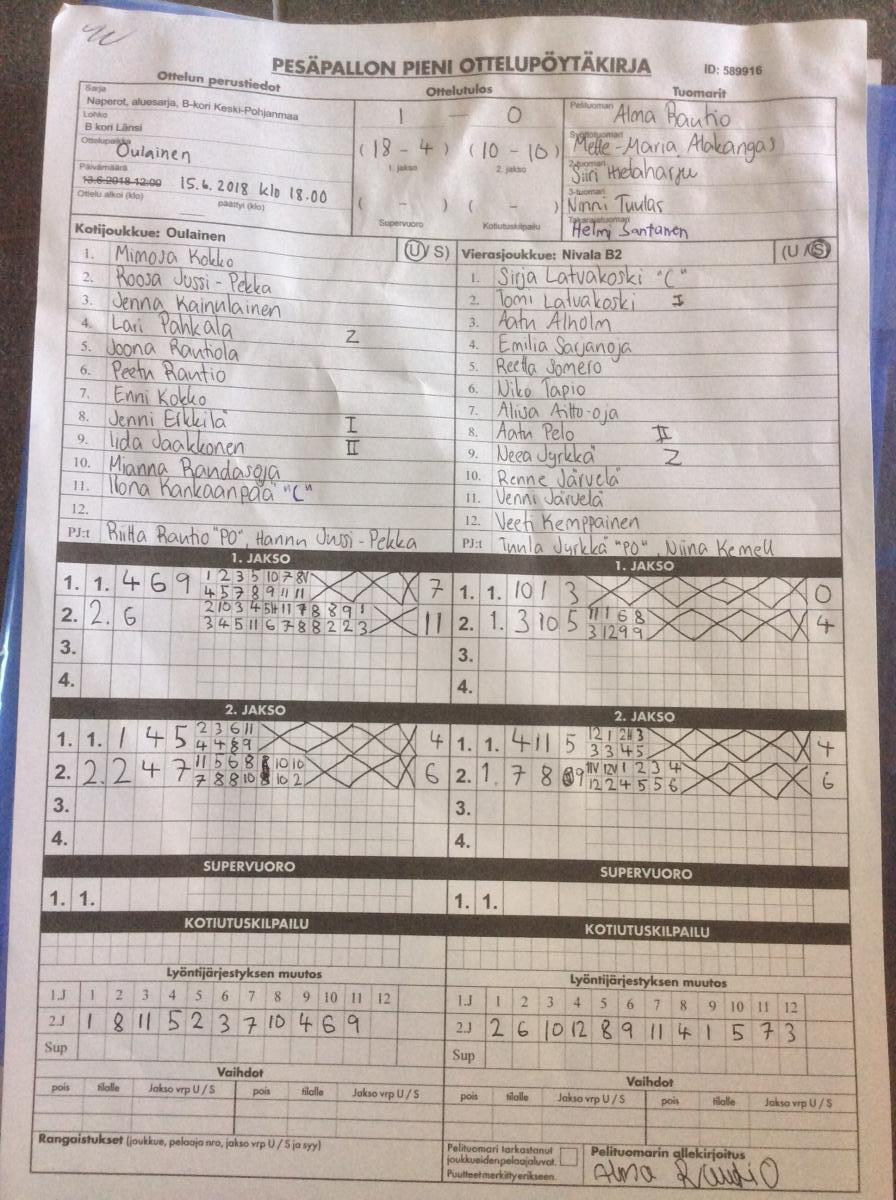 PESÄPALLON PIENI OTTELUPÖYTÄKIRJA
ID: 589916
Ottelun perustiedot
Ottelutulos
Tuomarit
Sarja
Naperot, aluesarja, B-kori Keski-Pohjanmaa
Lohko
B kori Länsi
Ottelupaikka Oulainen
Päivämäärä
13.6.2018 12:00 15.6.2018 klo 18.00
Ottelu alkoi (klo) päättyi (klo)
1 — 0
(18 - 4) (10 - 10)
1. jakso 2. jakso
( - ) ( - )
Supervuoro Kotiutuskilpailu
Pelituomari Alma Rautio
Syöttötuomari Mette-Maria Alakangas
2-tuomari Siiri Hietaharju
3-tuomari Ninni Tuulas
Takarajatuomari Helmi Santanen
Kotijoukkue: Oulainen (U/S)
1. Mimosa Kokko
2. Roosa Jussi-Pekka
3. Jenna Kainulainen
4. Lari Pahkala Z
5. Joona Rautiola
6. Peetu Rautio
7. Enni Kokko
8. Jenni Erkkilä I
9. Iida Jaakkonen II
10. Mianna Randasoja
11. Ilona Kankaanpää "C"
12.
PJ:t Riitta Rautio "PO", Hannu Jussi-Pekka
Vierasjoukkue: Nivala B2 (U/S)
1. Sirja Latvakoski "C"
2. Tomi Latvakoski I
3. Aatu Alholm
4. Emilia Sarjanoja
5. Reetta Somero
6. Niko Tapio
7. Aliisa Aitto-oja
8. Aatu Pelo II
9. Neea Jyrkkä Z
10. Renne Järvelä
11. Venni Järvelä
12. Veeti Kemppainen
PJ:t Tuula Jyrkkä "PO", Niina Kemell
1. JAKSO
1. 1. 4 6 9 1 2 3 5 10 7 8V 7
4 5 7 8 9 11 11
2. 2. 6 2 10 3 4 5H 11 7 8 8 9 1 11
3 4 5 11 6 7 8 8 2 2 3
3.
4.
1. JAKSO
1. 1. 10 1 3 0
2. 1. 3 10 5 11 1 6 8 4
3 12 9 9
3.
4.
2. JAKSO
1. 1. 1 4 5 2 3 6 11 4
4 4 8 9
2. 2. 2 4 7 11 5 6 8 8 10 10 6
7 8 8 10 8 10 2
3.
4.
2. JAKSO
1. 1. 4 11 5 12 1 2H 3 4
3 3 4 5
2. 1. 7 8 9 11V 12V 1 2 3 4 6
12 2 4 5 5 6
3.
4.
SUPERVUORO
1. 1.
SUPERVUORO
1. 1.
KOTIUTUSKILPAILU
KOTIUTUSKILPAILU
Lyöntijärjestyksen muutos
1.J 1 2 3 4 5 6 7 8 9 10 11 12
2.J 1 8 11 5 2 3 7 10 4 6 9
Sup
Lyöntijärjestyksen muutos
1.J 1 2 3 4 5 6 7 8 9 10 11 12
2.J 2 6 10 12 8 9 11 4 1 5 7 3
Sup
Vaihdot
pois tilalle Jakso vrp U / S pois tilalle Jakso vrp U / S
Vaihdot
pois tilalle Jakso vrp U / S pois tilalle Jakso vrp U / S
Rangaistukset (joukkue, pelaaja nro, jakso vrp U / S ja syy)
Pelituomari tarkastanut
joukkueiden pelaajaluvat.
Puutteet merkitty erikseen.
Pelituomarin allekirjoitus
Alma Rautio